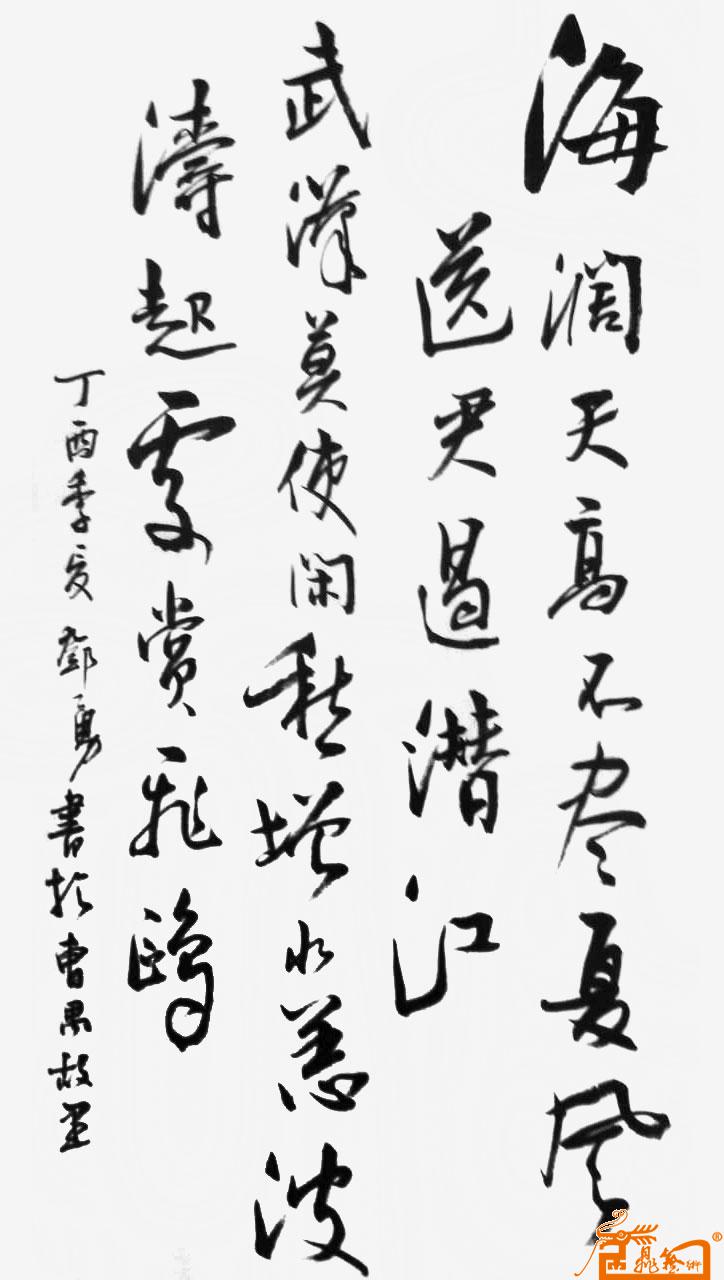 海阔天高不尽夏风
送君过潜江
武汉莫使闲愁增水恙波
涛起处赏飞鸥
丁酉季夏邓勇书于曹禺故里